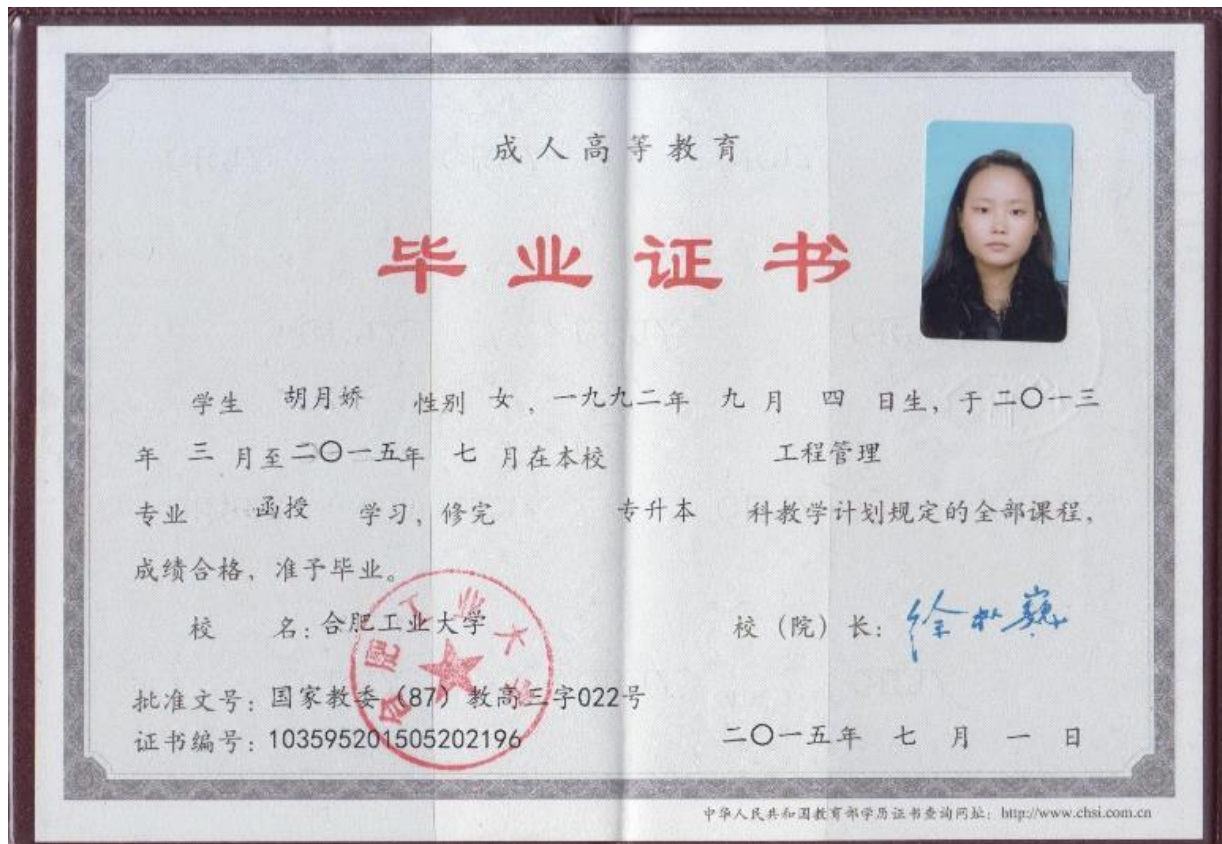 成人高等教育
毕业证书
学生 胡月娇 性别 女，一九九二年 九 月 四 日生，于二〇一三
年 三 月至二〇一五年 七 月在本校 工程管理
专业 函授 学习，修完 专升本 科教学计划规定的全部课程，
成绩合格，准予毕业。
校 名：合肥工业大学
合肥工业大学
校（院）长：徐枞巍
批准文号：国家教委（87）教高三字022号
证书编号：103595201505202196
二〇一五年 七 月 一 日
中华人民共和国教育部学历证书查询网址：http://www.chsi.com.cn